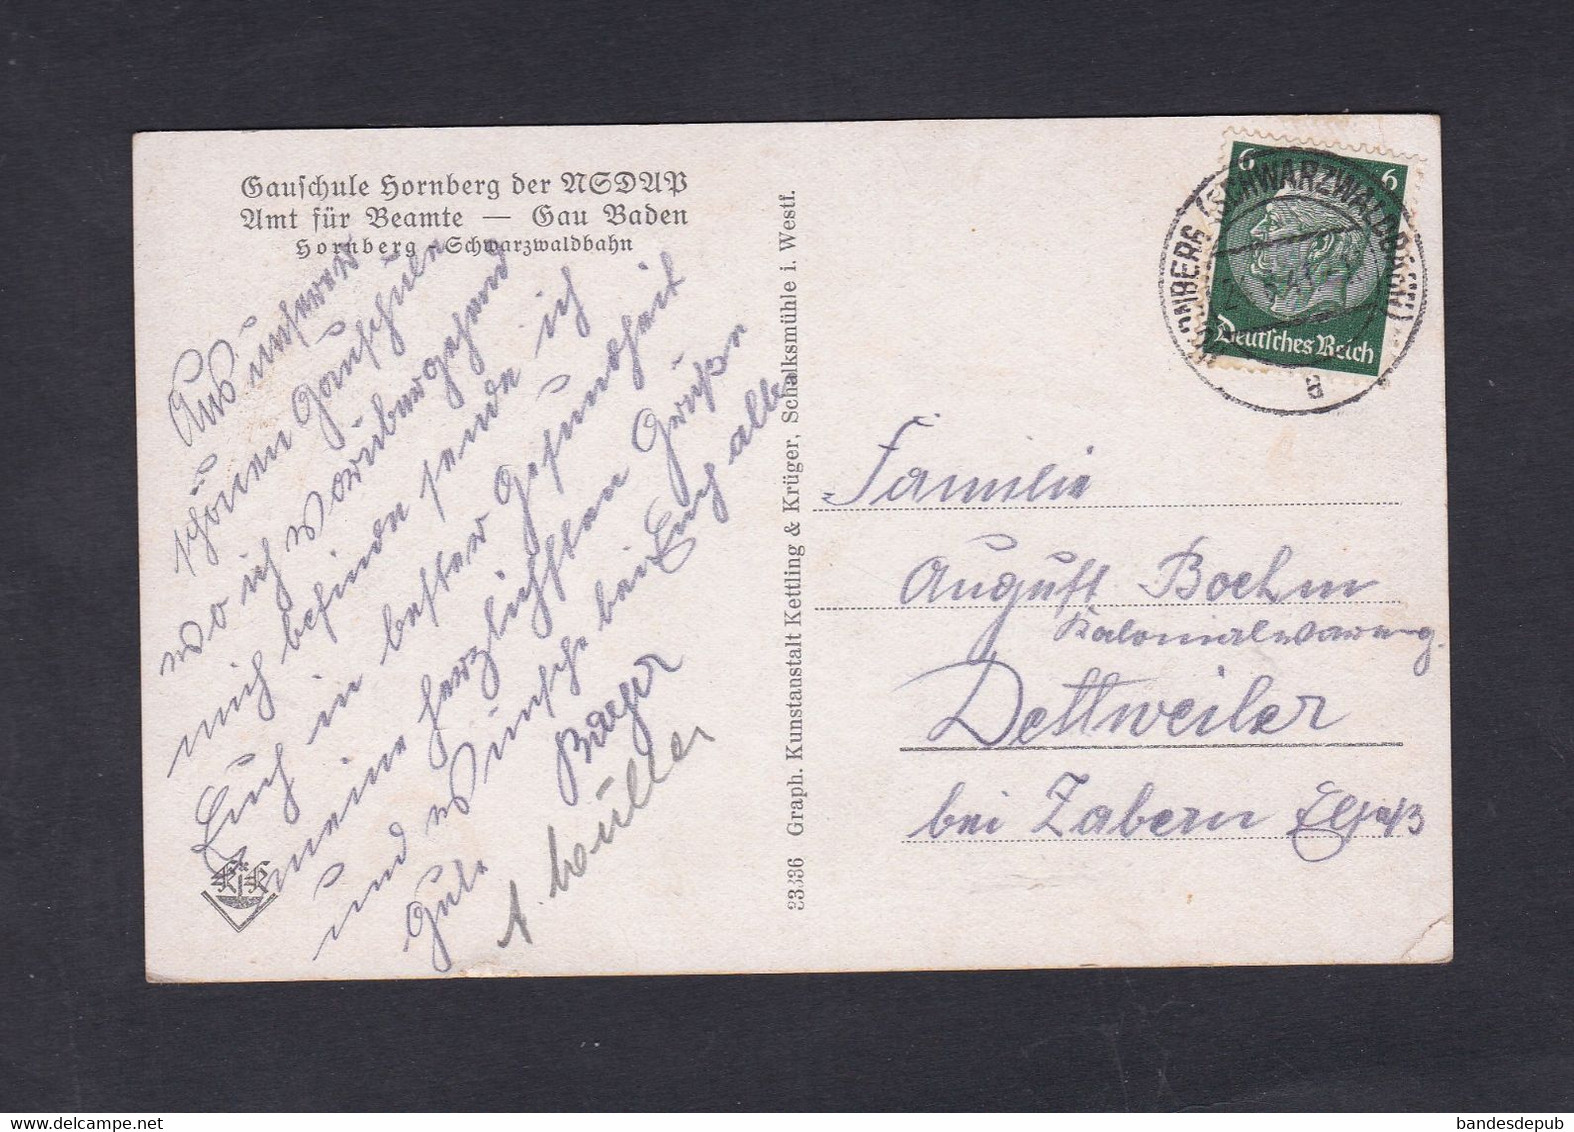 Gauschule Hornberg der NSDAP
Amt für Beamte — Gau Baden
Hornberg - Schwarzwaldbahn
Aus unserer
schönen Gauschule
wo ich vorübergehend
mich befinde sende ich
Euch in bester Gesundheit
meine herzlichsten Grüße
und Wünsche bei Euch alles
Gute.
A. Müller
23336 Graph. Kunstanstalt Kettling & Krüger, Schalksmühle i. Westf.
HORNBERG (SCHWARZWALDBAHN)
a
6 6
Deutsches Reich
Familie
August Boehm
Kolonialwareng.
Dettweiler
bei Zabern Elsaß
K&K
bandesdepub